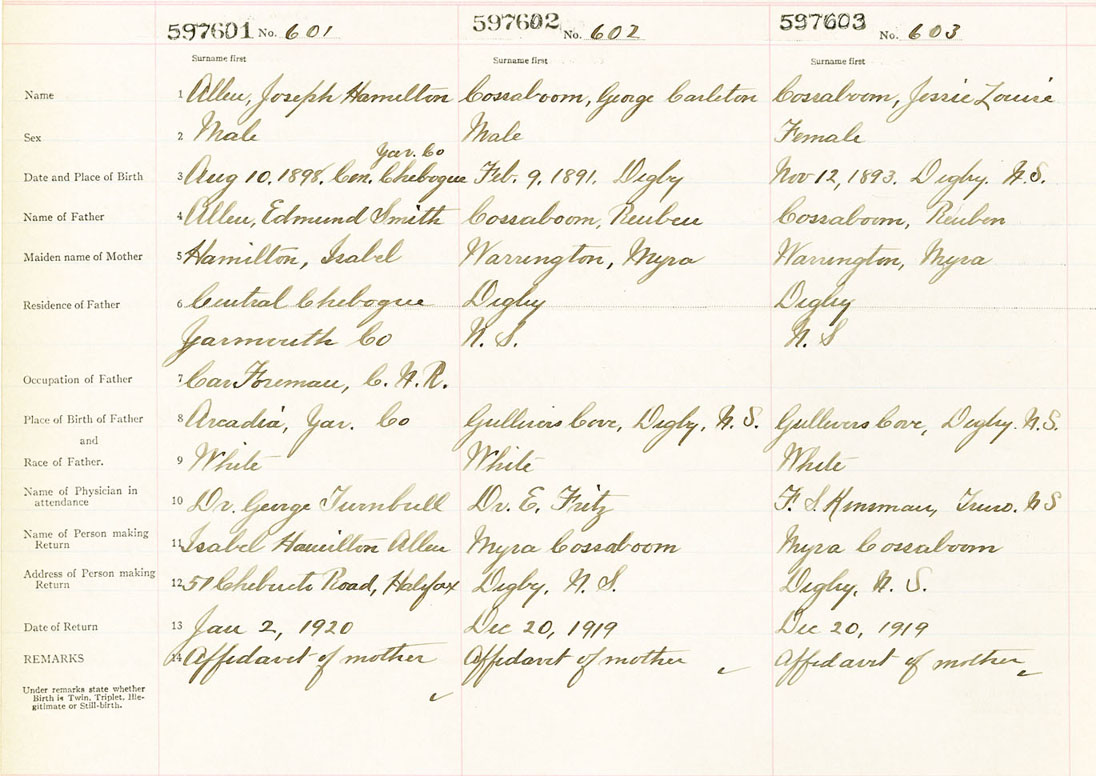 597601 No. 601 597602 No. 602 597603 No. 603
Surname first Surname first Surname first
Name 1 Allen, Joseph Hamilton Cossaboom, George Carleton Cossaboom, Jessie Louise
Sex 2 Male Male Female
Yar. Co
Date and Place of Birth 3 Aug 10. 1898. Cen. Chebogue Feb. 9. 1891. Digby Nov 12, 1893. Digby. N.S.
Name of Father 4 Allen, Edmund Smith Cossaboom, Reuben Cossaboom, Reuben
Maiden name of Mother 5 Hamilton, Isabel Warrington, Myra Warrington, Myra
Residence of Father 6 Central Chebogue Digby Digby
Yarmouth Co N. S. N. S
Occupation of Father 7 Car Foreman, C. N. R.
Place of Birth of Father 8 Arcadia, Yar. Co Gullivers Cove, Digby, N. S. Gullivers Cove, Digby. N.S.
and
Race of Father. 9 White White White
Name of Physician in
attendance 10 Dr. George Turnbull Dr. E. Fritz F. S Kinsman, Truro. N S
Name of Person making
Return 11 Isabel Hamilton Allen Myra Cossaboom Myra Cossaboom
Address of Person making
Return 12 51 Chebucto Road, Halifax Digby, N. S. Digby, N. S.
Date of Return 13 Jan 2, 1920 Dec 20, 1919 Dec 20, 1919
REMARKS 14 Affidavit of mother Affidavit of mother Affidavit of mother
Under remarks state whether
Birth is Twin, Triplet, Ille-
gitimate or Still-birth.